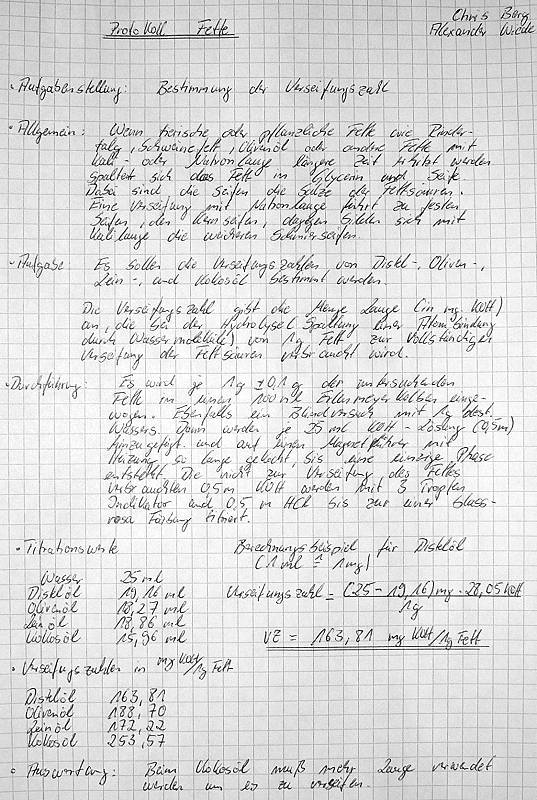 Chris Borg
Protokoll Fette
Alexander Wiede
• Aufgabenstellung: Bestimmung der Verseifungszahl
• Allgemein: Wenn tierische oder pflanzliche Fette wie Rinder-
talg, Schweinefett, Olivenöl oder andere Fette mit
Kali- oder Natronlauge längere Zeit erhitzt werden
spaltet sich das Fett in Glycerin und Seife.
Dabei sind die Seifen die Salze der Fettsäuren.
Eine Verseifung mit Natronlauge führt zu festen
Seifen, den Kernseifen, dagegen bilden sich mit
Kalilauge die weicheren Schmierseifen.
• Aufgabe Es sollen die Verseifungszahlen von Distel-, Oliven-,
Lein-, und Kokosöl bestimmt werden.
Die Verseifungszahl gibt die Menge Lauge (in mg KOH)
an, die bei der Hydrolyse( Spaltung einer Atombindung
durch Wassermoleküle) von 1g Fett zur vollständigen
Verseifung der Fettsäuren verbraucht wird.
• Durchführung: Es wird je 1g ± 0,1g der zu untersuchenden
Fette in einen 100 ml Erlenmeyerkolben einge-
wogen. Ebenfalls ein Blindversuch mit 1g dest.
Wassers. Dann werden je 25 ml KOH - Lösung (0,5m)
hinzugefügt und auf einem Magnetrührer mit
Heizung so lange gekocht, bis eine einzige Phase
entsteht. Die nicht zur Verseifung des Fettes
verbrauchten 0,5 m KOH werden mit 3 Tropfen
Indikator und 0,5 m HCl bis zur einer blass-
rosa Färbung titriert.
• Titrationswerte Berechnungsbeispiel für Distelöl
(1 ml ≙ 1mg)
Wasser 25 ml
Distelöl 19,16 ml Verseifungszahl = (25 - 19,16) mg · 28,05 KOH
Olivenöl 18,27 ml 1g
Leinöl 18,86 ml
Kokosöl 15,96 ml VZ = 163,81 mg KOH/1g Fett
• Verseifungszahlen in mg KOH/1g Fett
Distelöl 163,81
Olivenöl 188,70
Leinöl 172,22
Kokosöl 253,57
• Auswertung: Beim Kokosöl muß mehr Lauge verwendet
werden um es zu verseifen.